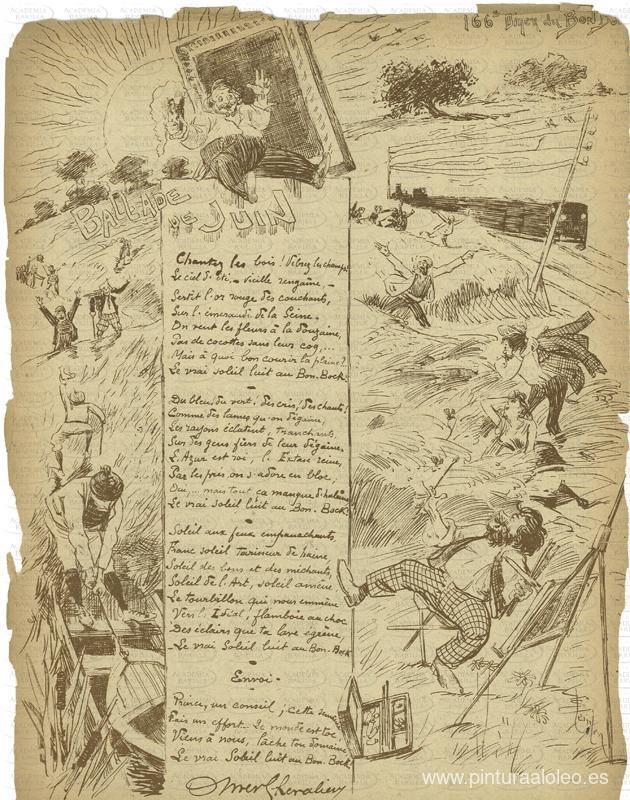 166e Diner du Bon Bo
BALLADE
DE JUIN
Chantez les bois! Vibrez les champs
Le ciel d'été, – vieille rengaine, –
Sertit l'or rouge des couchants,
Sur l'émeraude de la Seine.
On vent les fleurs à la douzaine,
Pas de cocottes sans leur coq...
Mais à quoi bon courir la plaine?
Le vrai soleil luit au Bon-Bock
Du bleu, du vert! des cris! des chants!
Comme des lames qu'on dégaine,
Les rayons éclatent, tranchants,
Sur des gens fiers de leur dégaine.
L'Azur est roi, l'Extase reine,
Par les prés on s'adore en bloc,
Oui,... mais tout ça manque d'haleine
Le vrai soleil luit au Bon-Bock
Soleil aux feux empanachants,
Franc soleil tarisseur de haine
Soleil des bons et des méchants,
Soleil de l'Art, soleil amène
Le tourbillon qui nous emmène
Vers l'Idéal, flamboie au choc
Des éclairs que ta lave égrène,
Le vrai Soleil luit au Bon-Bock
Envoi –
Prince, un conseil; cette
Fais un effort. Le monde est toc
Viens à nous, lâche ton domaine
Le vrai Soleil luit au Bon-Bock
Omer Chevalier
www.pinturaaloleo.es